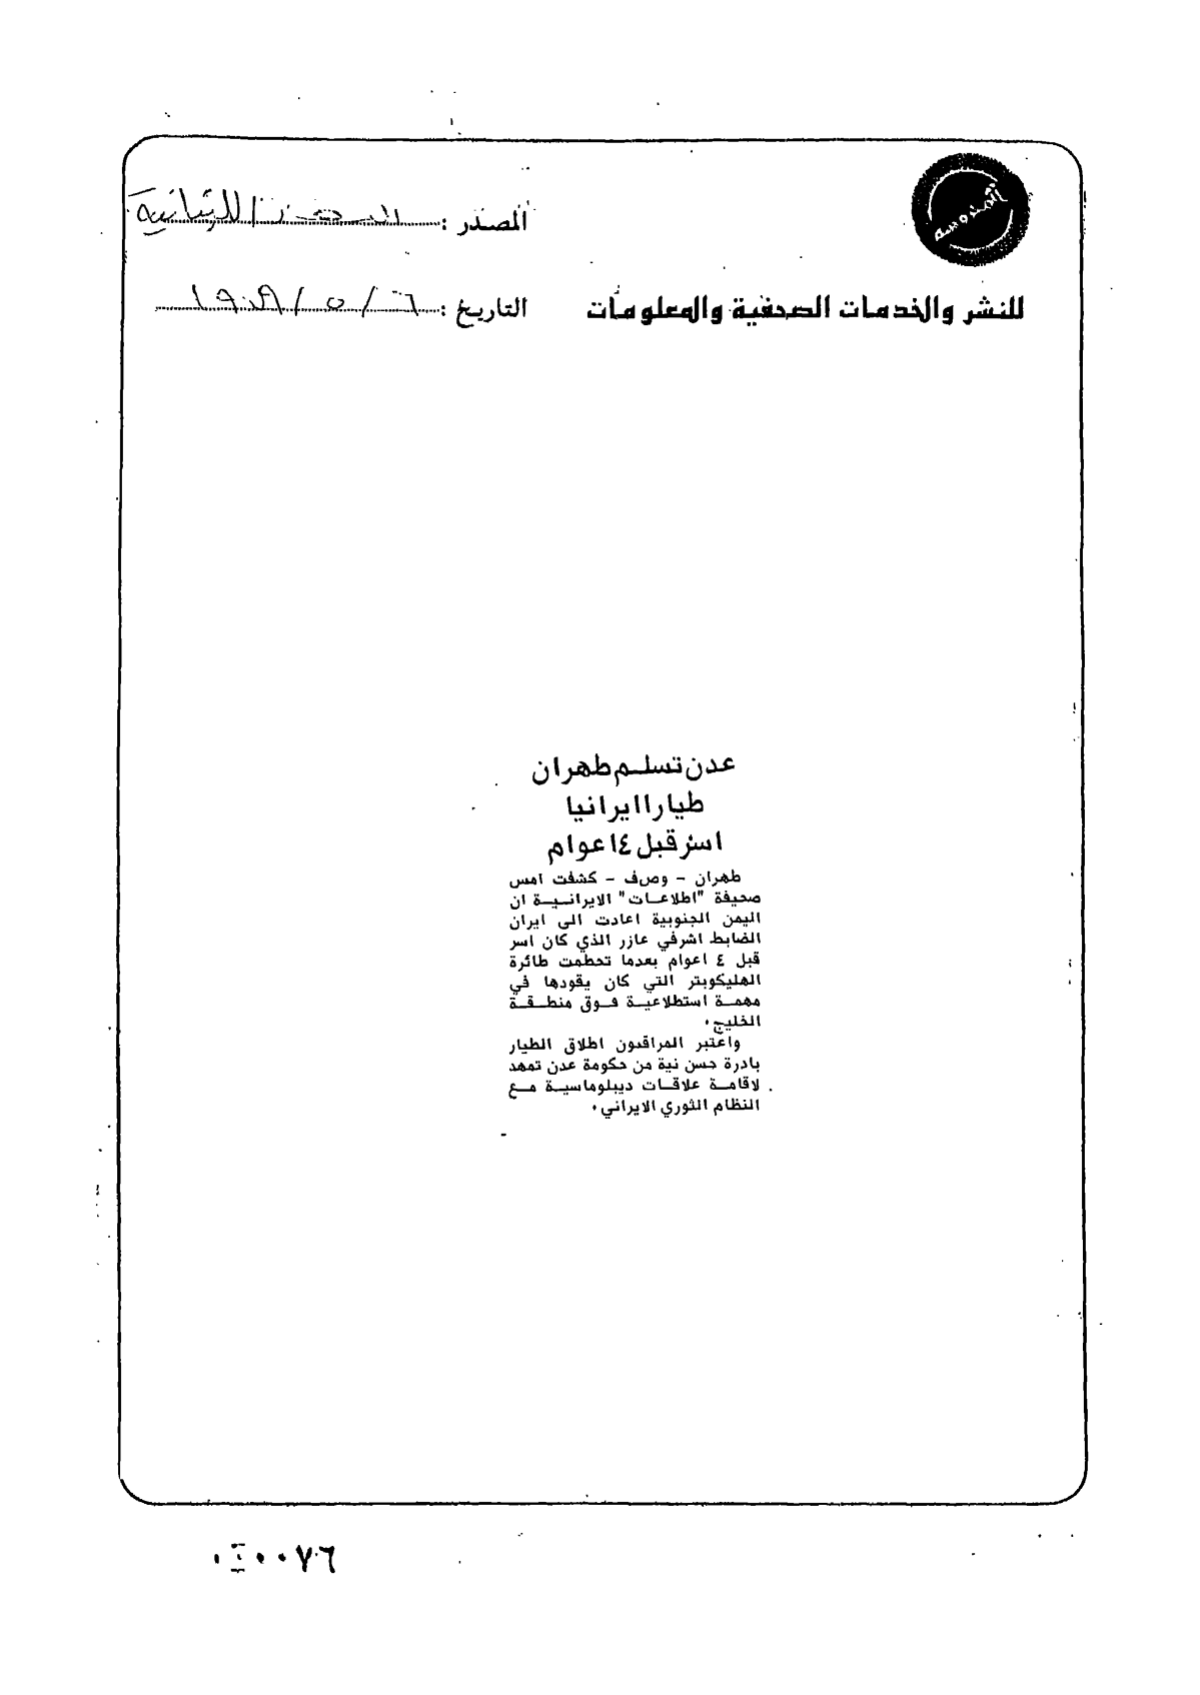 المصدر : السفير اللبنانية
للنشر والخدمات الصحفية والمعلومات
التاريخ : ٦ / ٥ /
عدن تسلم طهران
طيارا ايرانيا
اسر قبل ٤ اعوام
طهران - وصف - كشفت امس
صحيفة "اطلاعات" الايرانية ان
اليمن الجنوبية اعادت الى ايران
الضابط اشرفي عازر الذي كان اسر
قبل ٤ اعوام بعدما تحطمت طائرة
الهليكوبتر التي كان يقودها في
مهمة استطلاعية فوق منطقة
الخليج.
واعتبر المراقبون اطلاق الطيار
بادرة حسن نية من حكومة عدن تمهد
لاقامة علاقات ديبلوماسية مع
النظام الثوري الايراني.